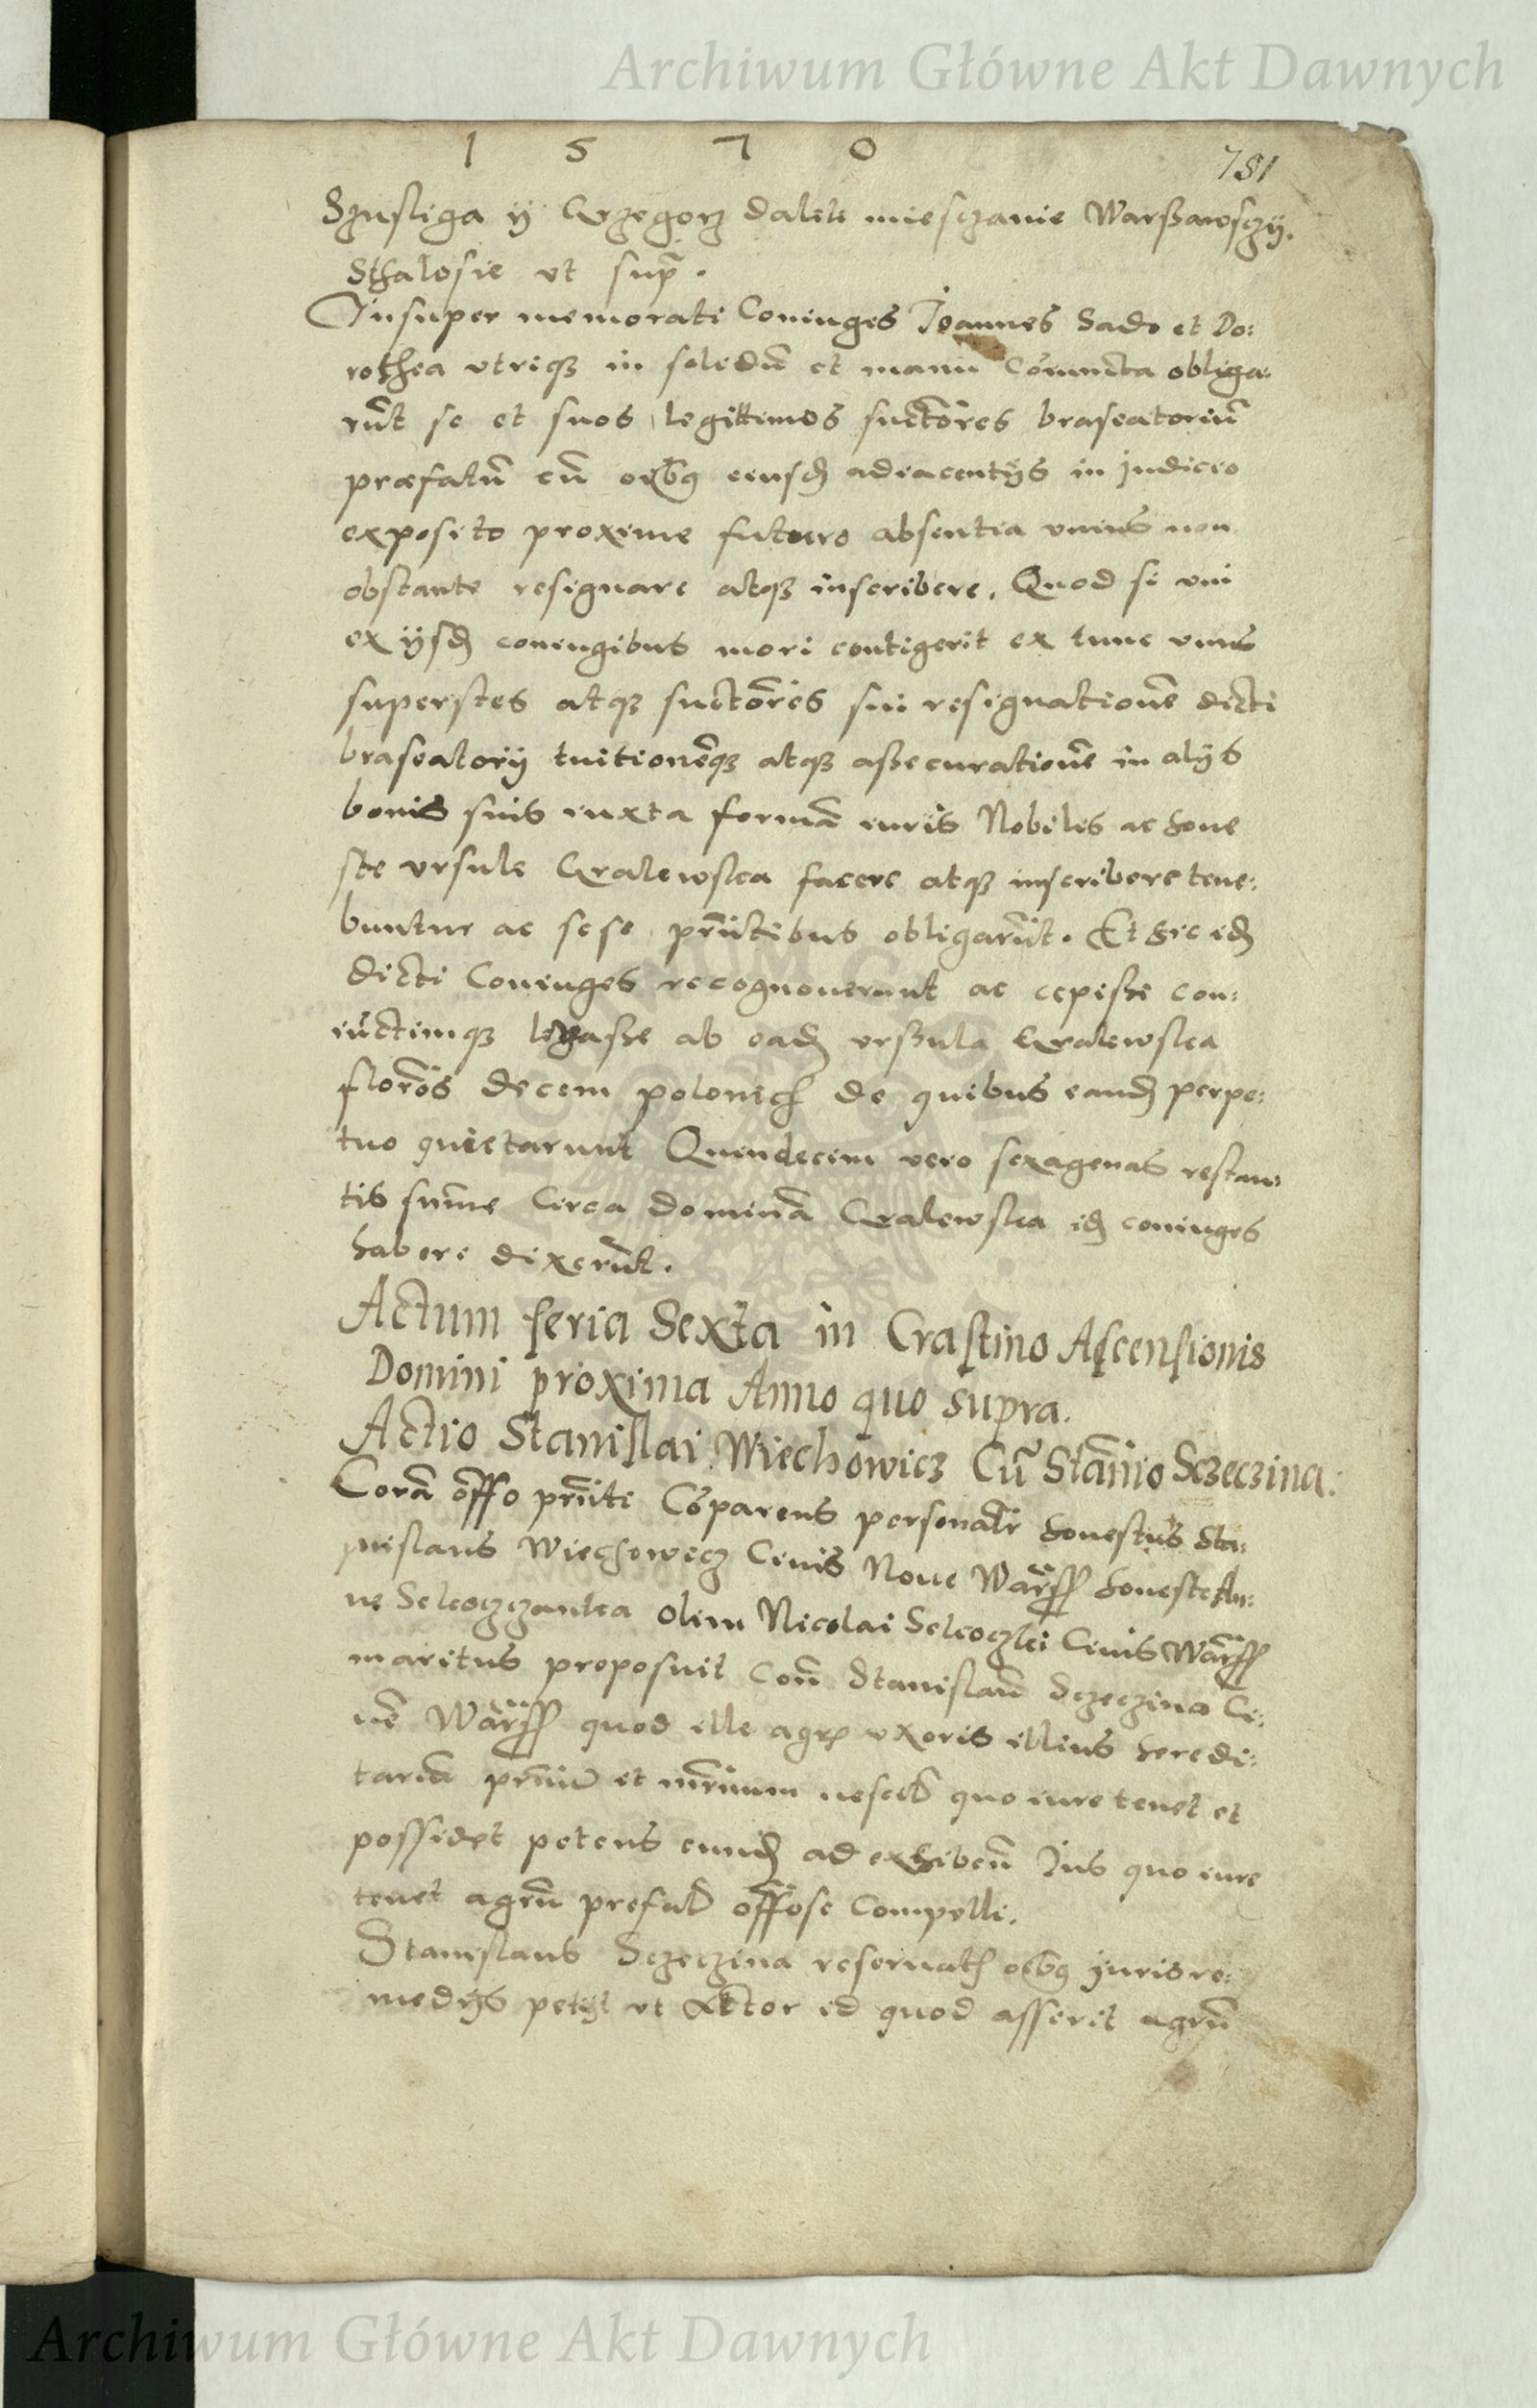 Archiwum Główne Akt Dawnych
1 5 7 0
781
Szusliga ÿ Grzegorz dalek miesczanie Warßawsczÿ.
Sthalosie ut supra.
Insuper memorati Coniuges Joannes Sado et Do:
rothea utriqȝ in solidū et manu Coniuncta obliga:
rūt se et suos legittimos suctōres braseatoriū
præfatū cū oibȝ eiusd adiacentÿs in judicio
exposito proxime futuro absentia unius non
obstante resignare atqȝ inscribere. Quod si uni
ex ÿsd coniugibus mori contigerit ex tunc unus
superstes atqȝ suctōres sui resignationē dicti
braseatorÿ tuitionēqȝ atqȝ aßecurationē in alÿs
bonis suis iuxta formā iuris Nobilis ac hone
ste ursule Gralewska facere atqȝ inscribere tene:
buntur ac sese pn̄tibus obligarūt. Et hic id
dicti Coniuges recognoverunt ac cepiße con:
iūctimqȝ leuaße ab ead urßula Gralewska
florōs decem polonich de quibus eand perpe:
tuo quietarunt Quindecim vero sexagenas restan:
tis sum̄e Circa dominā Gralewska id coniuges
habere dixerūt.
Actum feria Sexta in Crastino Ascensionis
Domini proxima Anno quo supra.
Actio Stanislai Wiechowicz Cū Stānio Sczeczina.
Corā offo pn̄ti Cōparens personalr honestus Sta:
nislaus Wiechowicz Civis Noue Warss honeste An:
ne Selcoczczanka olim Nicolai Selcoczki Civis Warss
maritus proposuit Con̄ Stanislaū Sczeczina Ci:
uē Warss quod ille agrū uxoris illius heredi:
tariū prn̄iū et mr̄inum nescit quo iure tenet et
possidet petens eund ad exhiben̄ Jus quo iure
tenet agrū prefat offose Compelli.
Stanislaus Sczeczina reseruatis oibȝ juris re:
medÿs petÿt ut Actor id quod asserit agrū
Archiwum Główne Akt Dawnych